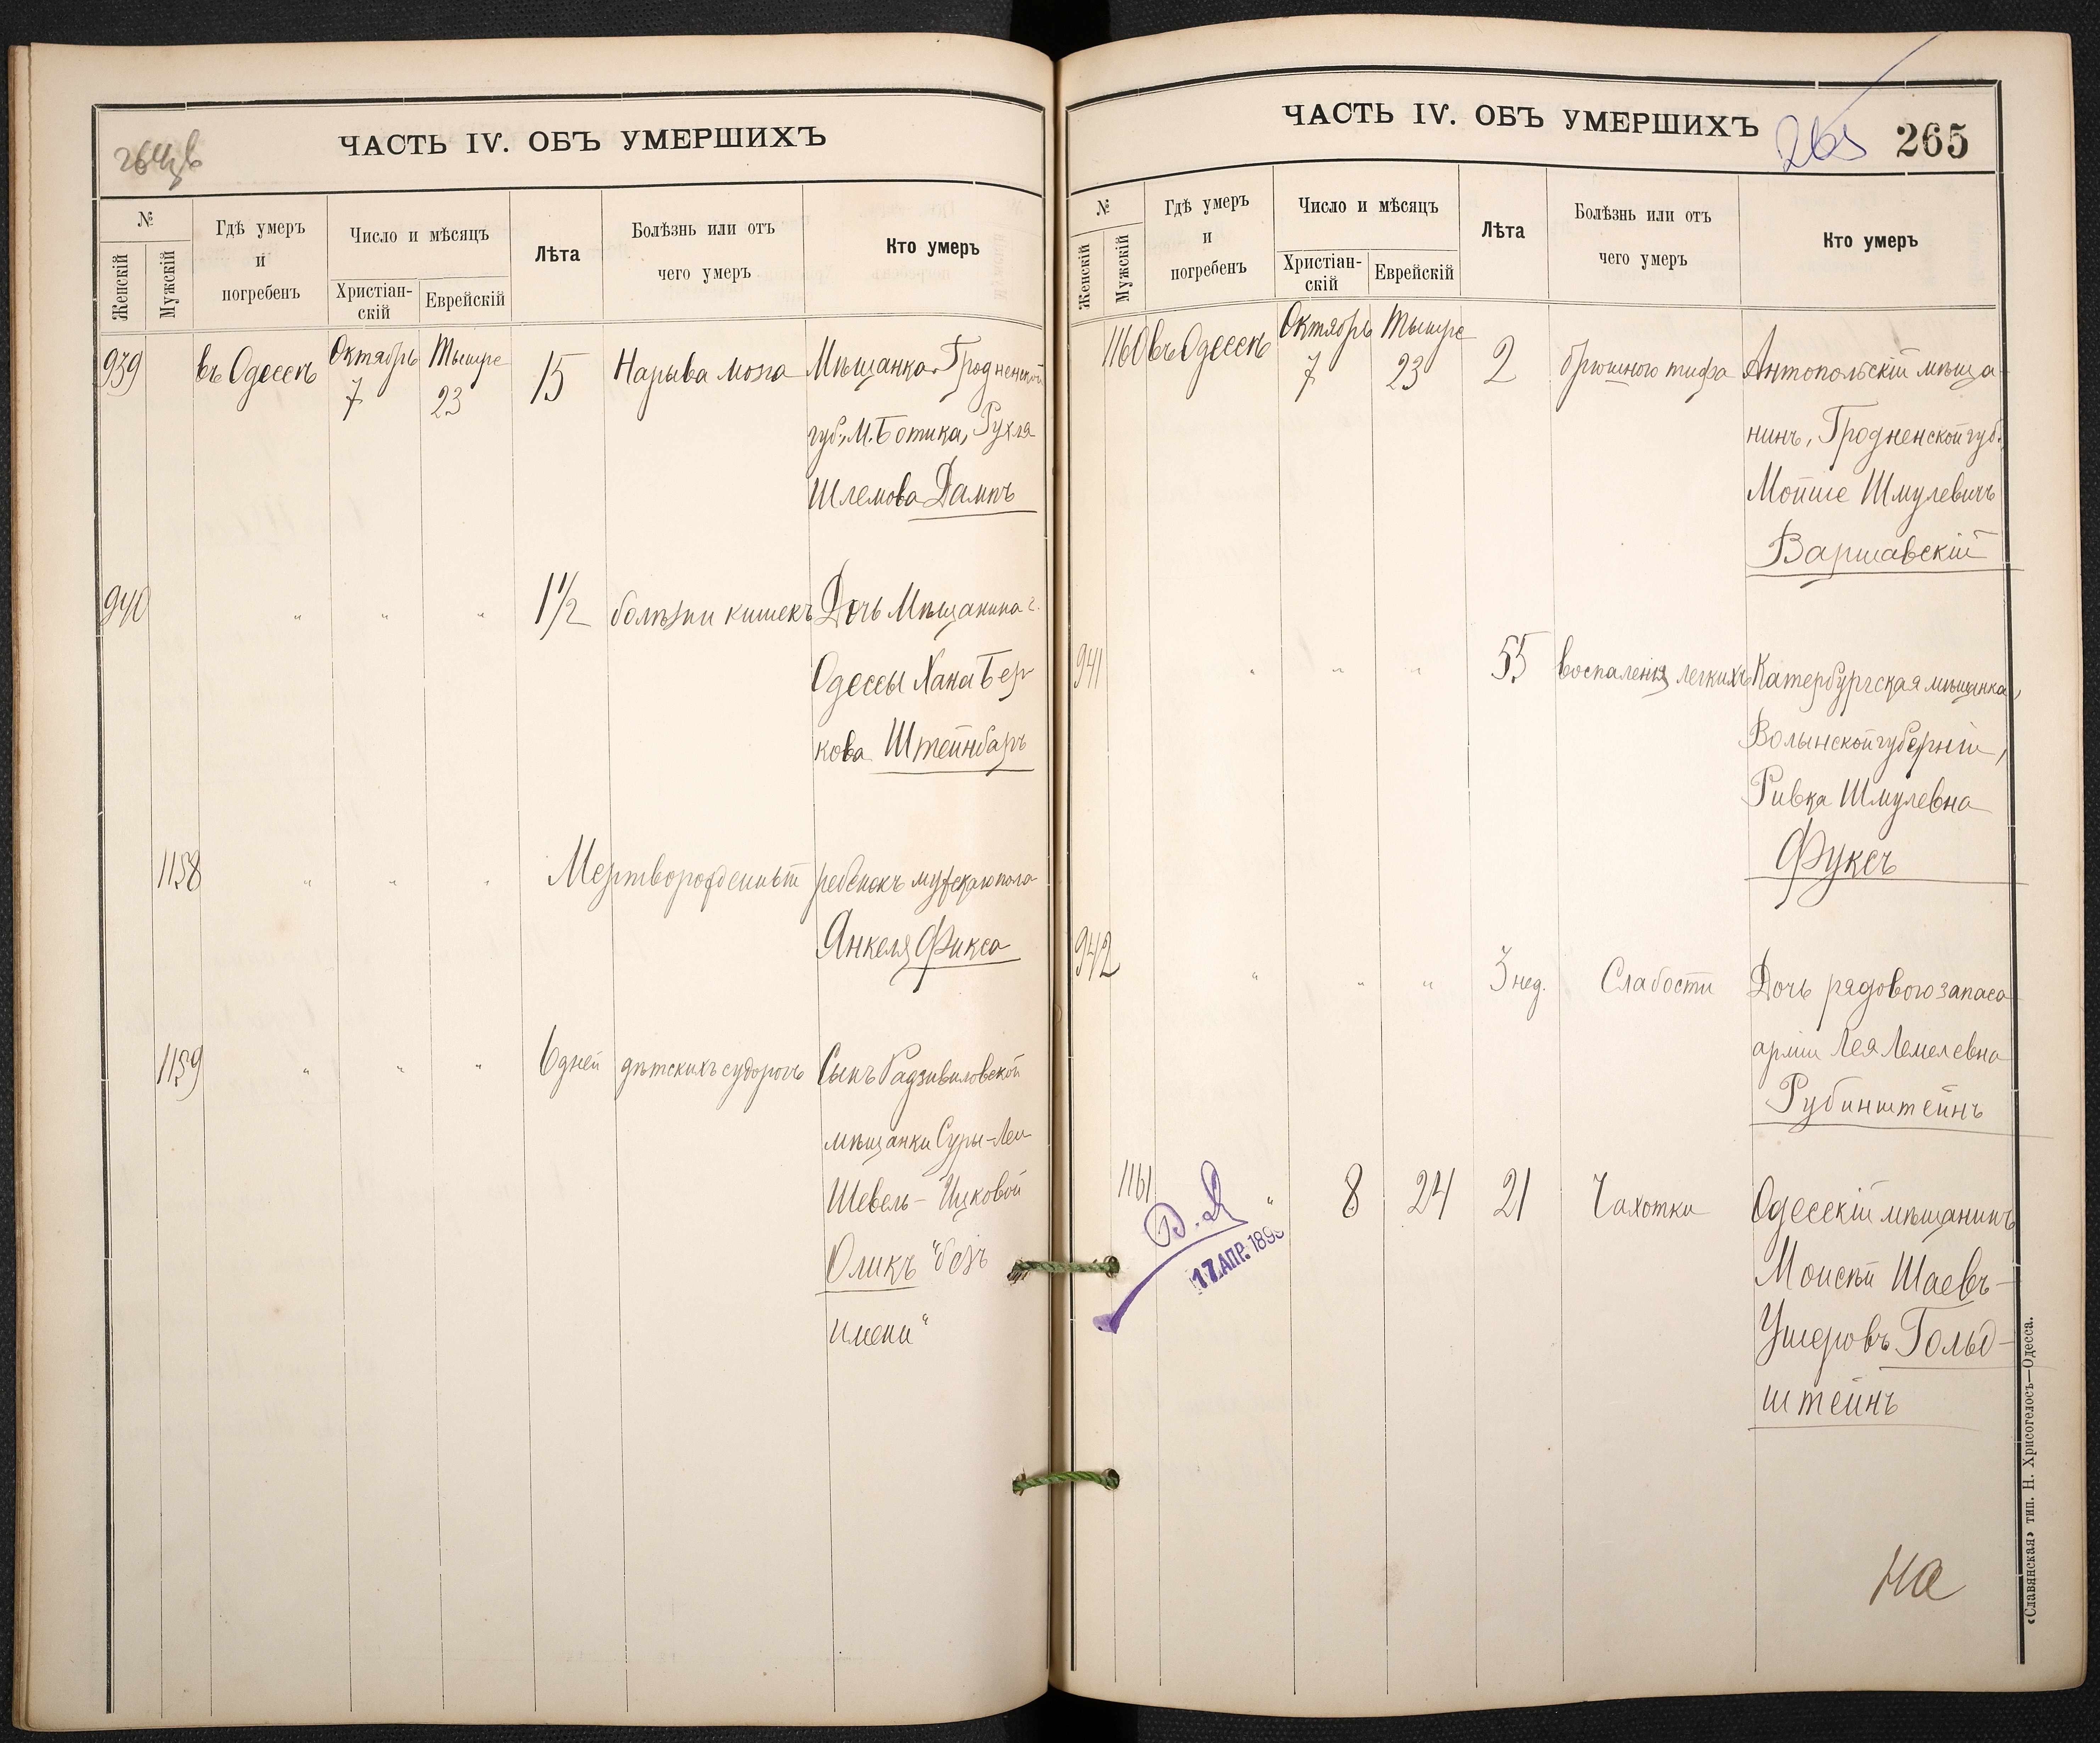 264 об
ЧАСТЬ IV. ОБЪ УМЕРШИХЪ
№
Женскій
Мужскій
Гдѣ умеръ
и
погребенъ
Число и мѣсяцъ
Христіан-
скій
Еврейскій
Лѣта
Болѣзнь или отъ
чего умеръ
Кто умеръ
939 въ Одессѣ Октябрь 7 Тышре 23 15 Нарыва мозга Мѣщанка, Гродненской
губ., М. Ботика, Рухля
Шлемова Дампъ
940 " " " 1 1/2 болѣзни кишекъ Дочь Мѣщанина г.
Одессы Хана Бер-
кова Штейнбаръ
1158 " " " Мертворожденный ребенокъ мужскаго пола
Янкеля Фикса
1159 " " " 6 дней дѣтскихъ судорогъ Сынъ Радзивиловской
мѣщанки Суры-Леи
Шевель-Ицковой
Оликъ "безъ
имени"
ЧАСТЬ IV. ОБЪ УМЕРШИХЪ
265
265
№
Женскій
Мужскій
Гдѣ умеръ
и
погребенъ
Число и мѣсяцъ
Христіан-
скій
Еврейскій
Лѣта
Болѣзнь или отъ
чего умеръ
Кто умеръ
1160 въ Одессѣ Октябрь 7 Тышре 23 2 брюшного тифа Антопольскій мѣща-
нинъ, Гродненской губ.,
Мойше Шмулевичъ
Варшавскій
941 " " " 55 воспаленія легкихъ Катербургская мѣщанка,
Волынской губерніи,
Ривка Шмулевна
Фуксъ
942 " " " 3 нед. Слабости Дочь рядового запаса
арміи Лея Лемелевна
Рубинштейнъ
1161 " 8 24 21 Чахотки Одесскій мѣщанинъ
Моисѣй Шаевъ-
Ушеровъ Гольд-
штейнъ
17 АПР. 189
На
«Славянская» тип. Н. Хрисогелосъ—Одесса.